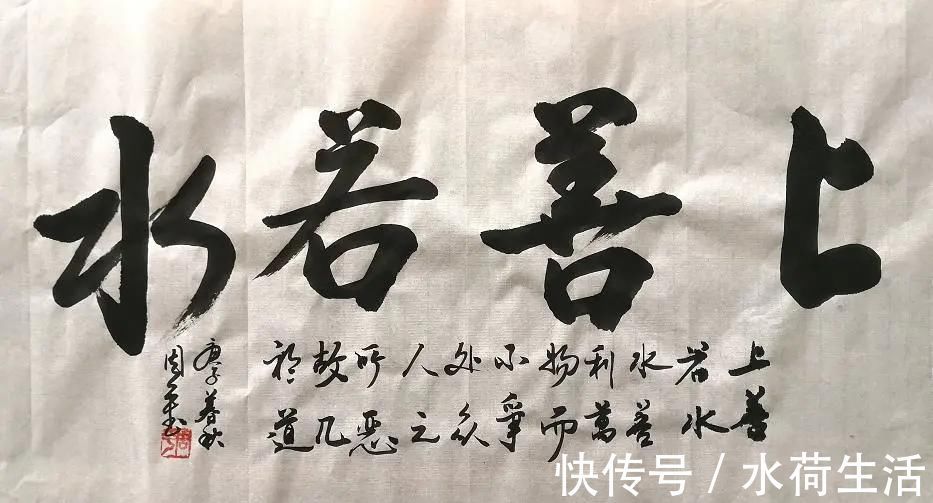 上善若水
上善
若水
水善
利萬
物而
不爭
处众
人之
所恶
故几
於道
庚子暮秋
周
快传号 / 水荷生活